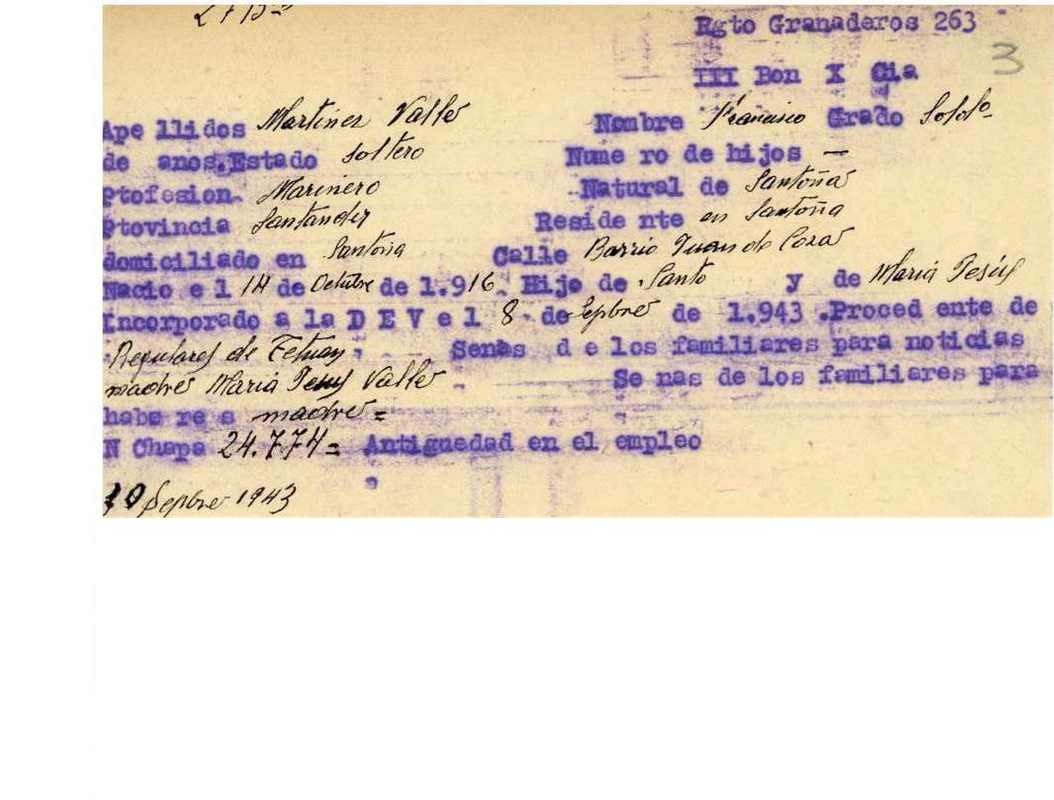 Rgto Granaderos 263
3
III Bon X Cia
Ape llidos Martinez Valle Nombre Francisco Grado Soldo
de anos.Estado Soltero Nume ro de hijos —
Ptofesion. Marinero Natural de Santoña
Ptovincia Santander Reside nte en Santoña
domiciliado en Santoña Calle Barrio Juan de Cosa
Nacio e l 14 de Octubre de 1.916. Hijo de Santo y de Maria Jesús
Incorporado a la D E V e l 8 de Sepbre de 1.943 .Proced ente de
Regulares de Tetuan. Senas d e los familiares para noticias
madre Maria Jesus Valle Se nas de los familiares para
habe re s madre =
N Chapa 24.774= Antiguedad en el empleo
10 Sepbre 1943